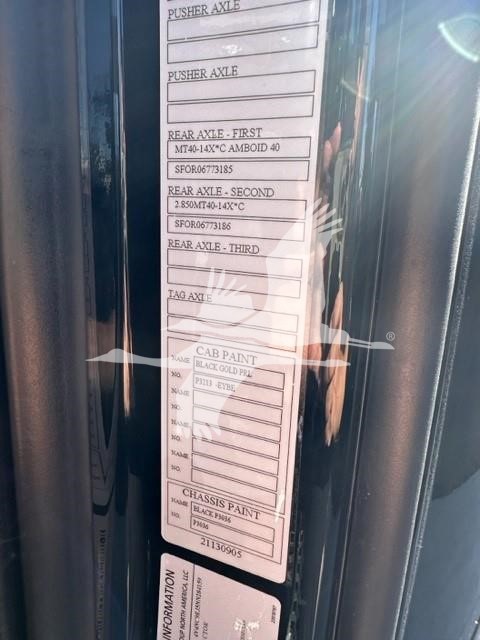 PUSHER AXLE
PUSHER AXLE
REAR AXLE - FIRST
MT40-14X*C AMBOID 40
SFOR06773185
REAR AXLE - SECOND
2.850MT40-14X*C
SFOR06773186
REAR AXLE - THIRD
TAG AXLE
CAB PAINT
NAME BLACK GOLD
NO.
NAME
NO.
NAME
NO.
NAME
NO.
CHASSIS PAINT
NAME BLACK P3036
NO. P3036
21130905
INFORMATION
NORTH AMERICA, LLC
®